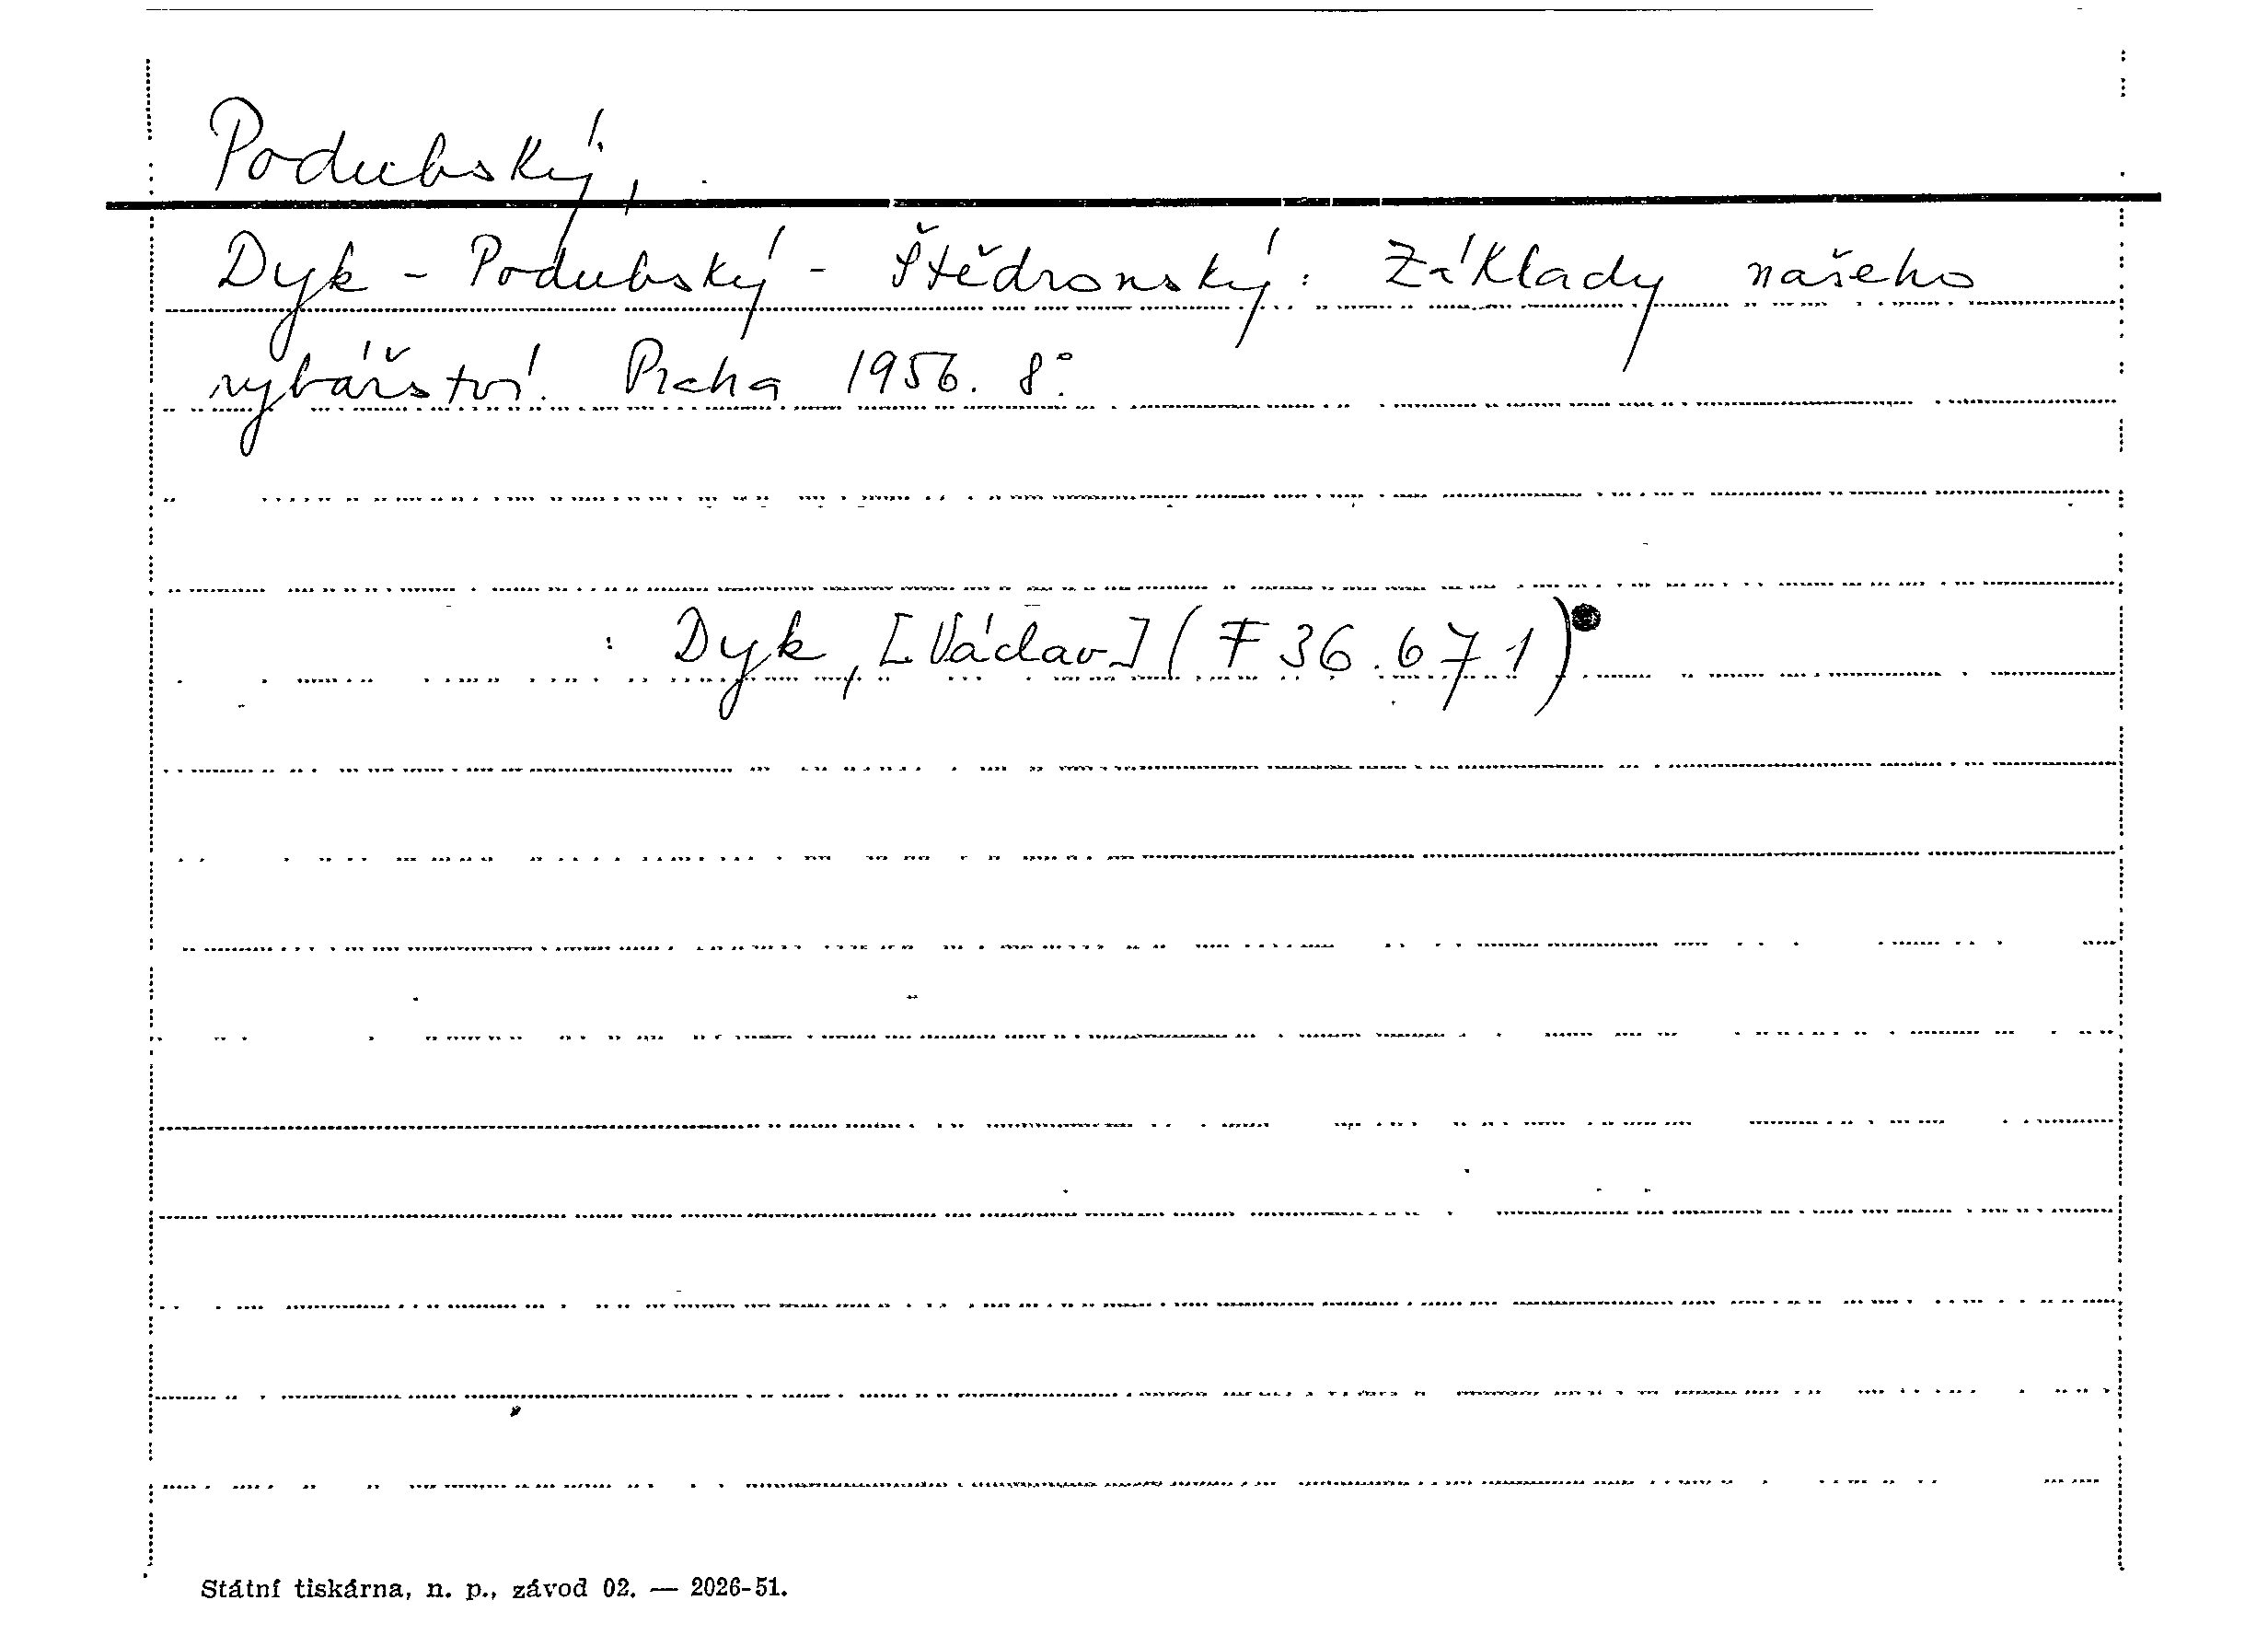 Podubský,
Dyk - Podubský - Štědronský: Základy našeho
rybářství. Praha 1956. 8°.
: Dyk, [Václav] (F 36.671)
Státní tiskárna, n. p., závod 02. — 2026-51.